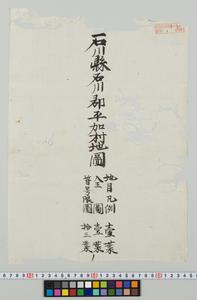 石川縣石川郡平加村地圖
地目凡例 壹葉
全圖 壹葉
番号限圖 拾三葉